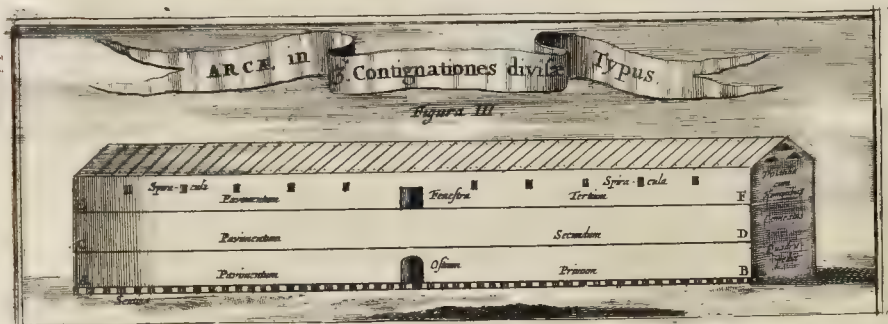 ARCÆ in 3. Contignationes divisæ Typus.
Figura III.
Spira-cula Spira-cula
Pavimentum Fenestra Tertium F
C Pavimentum Secundum D
Pavimentum Ostium Primum B
Sentina